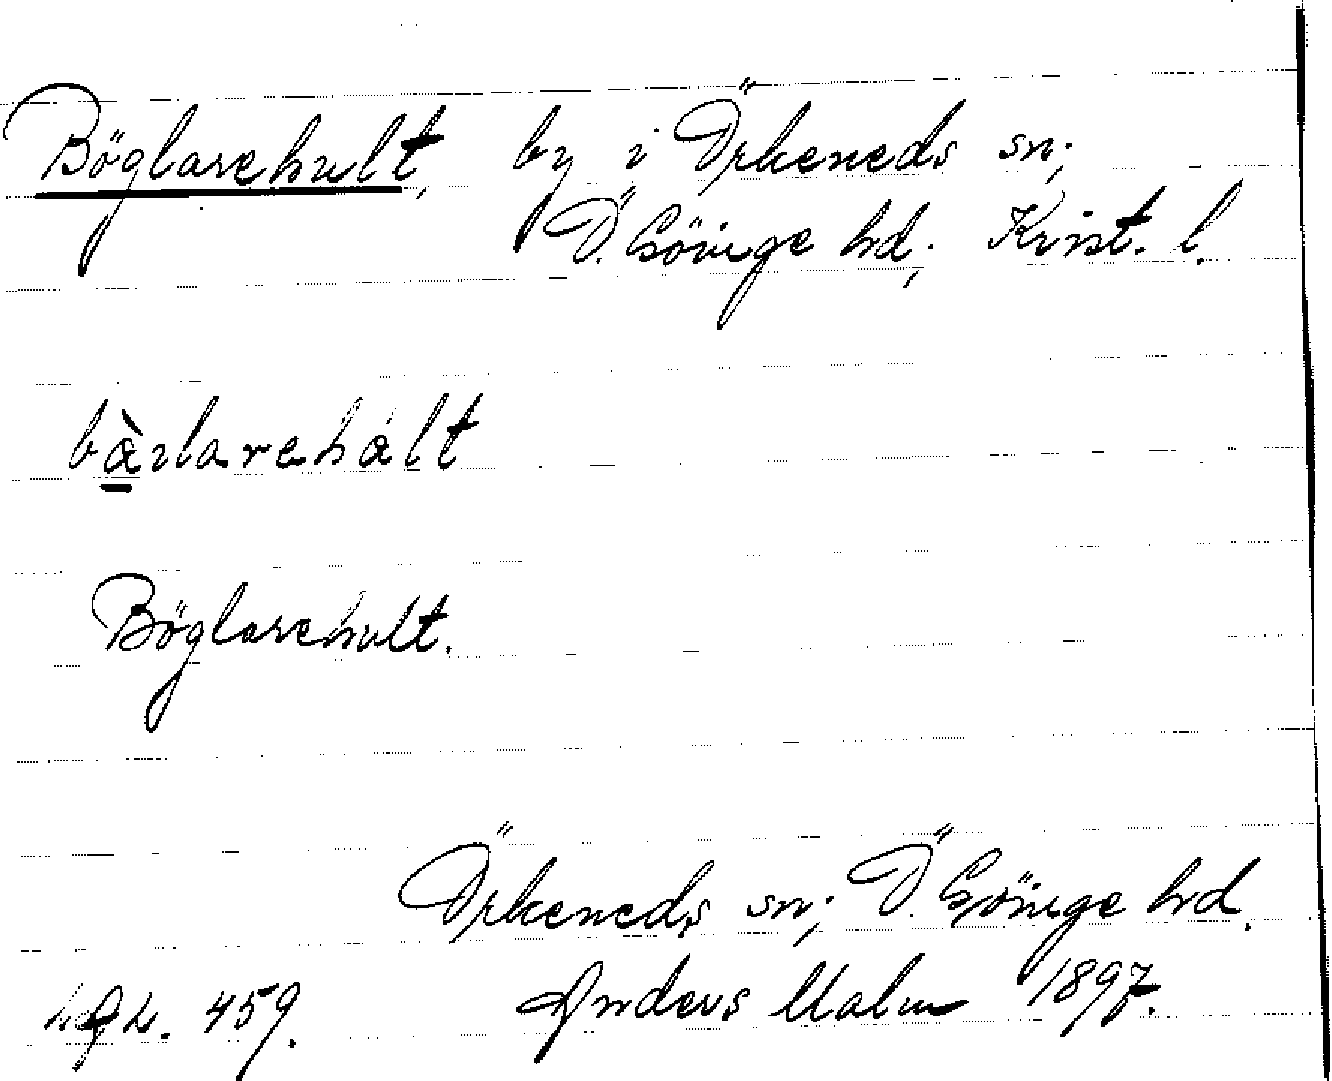 Böglarehult, by i Örkeneds sn;
Ö. Göinge hd; Krist. l.
bàɩlarehált
Böglarehult.
Örkeneds sn; Ö. Göinge hd.
459. Anders Malm 1897.